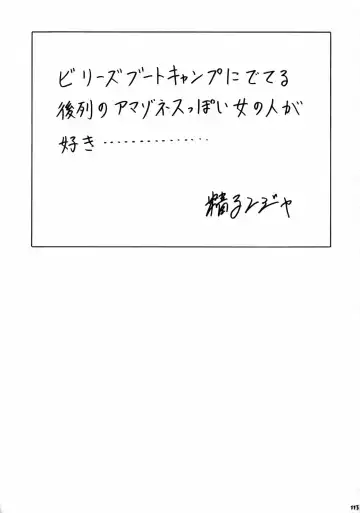 ビリーズブートキャンプにでてる
後列のアマゾネスっぽい女の人が
好き……………
精子ンジャ